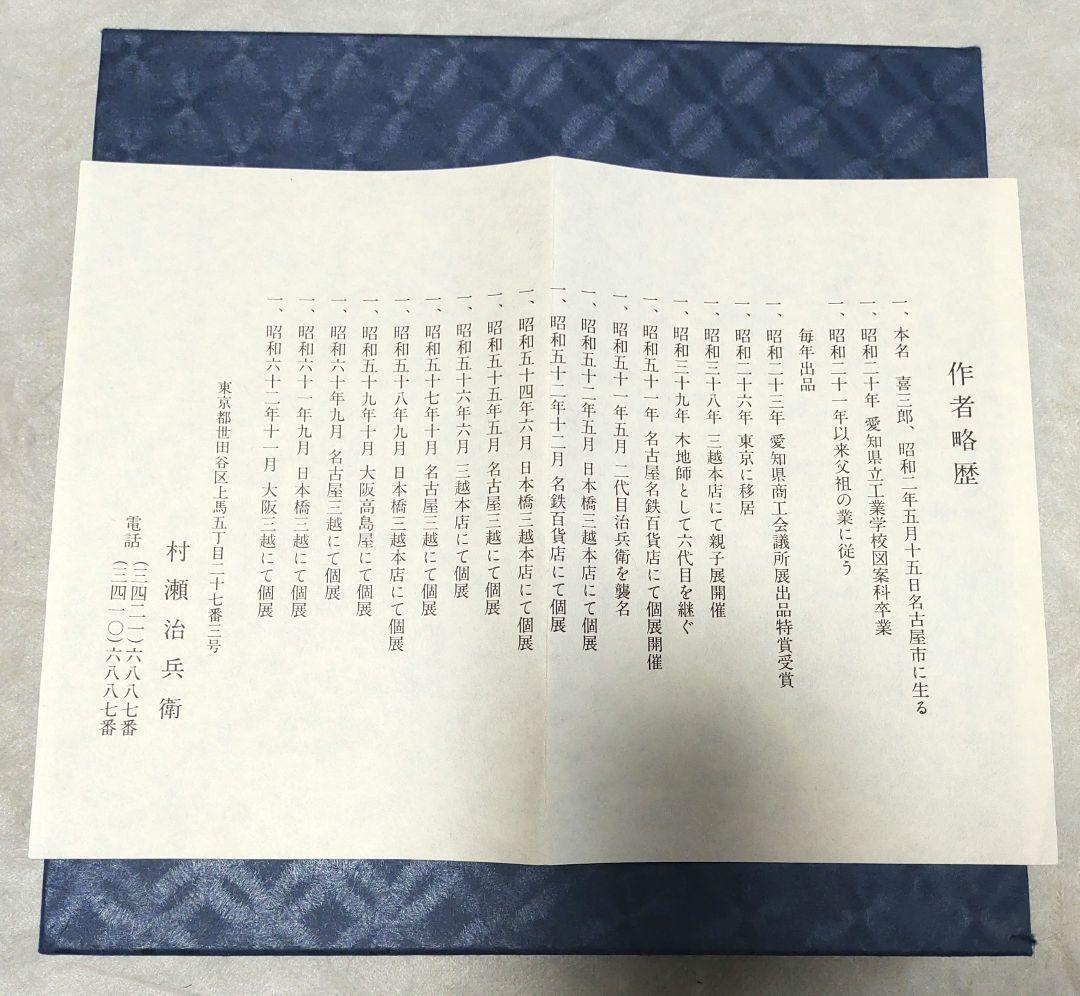 作者略歴
一、本名 喜三郎、昭和二年五月十五日名古屋市に生る
一、昭和二十年 愛知県立工業学校図案科卒業
一、昭和二十一年以来父祖の業に従う
毎年出品
一、昭和二十三年 愛知県商工会議所展出品特賞受賞
一、昭和二十六年 東京に移居
一、昭和三十八年 三越本店にて親子展開催
一、昭和三十九年 木地師として六代目を継ぐ
一、昭和五十一年 名古屋名鉄百貨店にて個展開催
一、昭和五十一年五月 二代目治兵衛を襲名
一、昭和五十二年五月 日本橋三越本店にて個展
一、昭和五十二年十二月 名鉄百貨店にて個展
一、昭和五十四年六月 日本橋三越本店にて個展
一、昭和五十五年五月 名古屋三越にて個展
一、昭和五十六年六月 三越本店にて個展
一、昭和五十七年十月 名古屋三越にて個展
一、昭和五十八年九月 日本橋三越本店にて個展
一、昭和五十九年十月 大阪高島屋にて個展
一、昭和六十年九月 名古屋三越にて個展
一、昭和六十一年九月 日本橋三越にて個展
一、昭和六十二年十一月 大阪三越にて個展
東京都世田谷区上馬五丁目二十七番三号
村瀬治兵衛
電話 (三四二一)六八八七番
(三四一〇)六八八七番